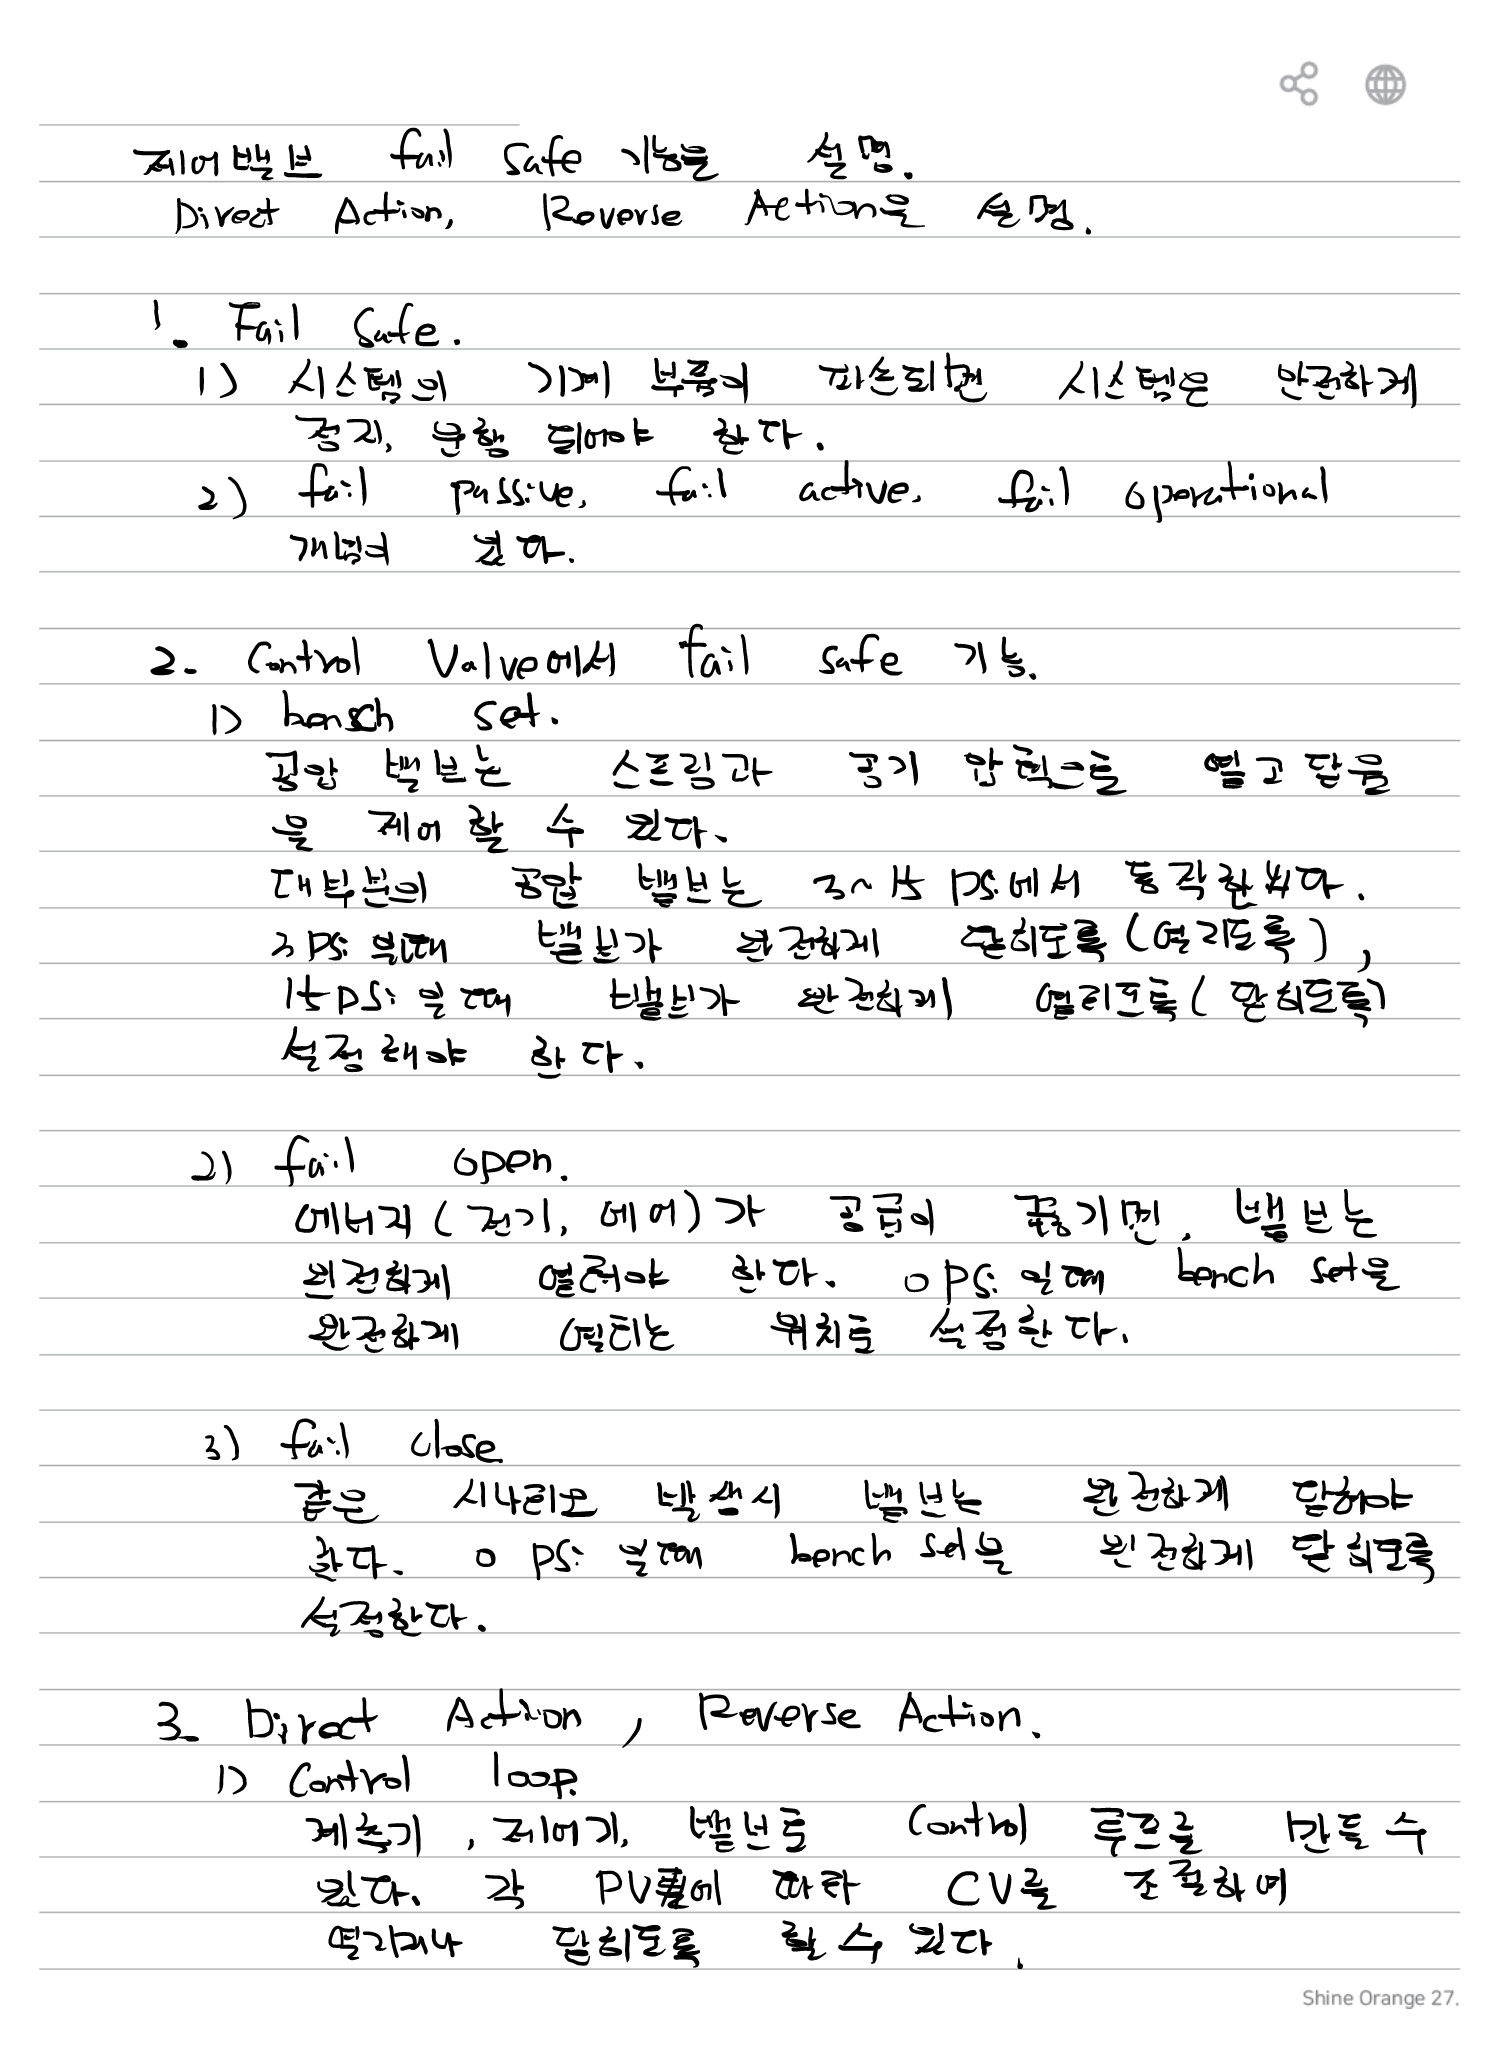 제어밸브 fail safe 기능을 설명.
Direct Action, Reverse Action을 설명.
1. Fail Safe.
1) 시스템의 기계 부품이 파손되면 시스템은 안전하게
정지, 운행 되어야 한다.
2) fail passive, fail active, fail operational
개념이 있다.
2. Control Valve에서 fail safe 기능.
1) bensch set.
공압 밸브는 스프링과 공기 압력으로 열고 닫음
을 제어 할 수 있다.
대부분의 공압 밸브는 3~15 psi에서 동작한다.
3 psi 일때 밸브가 완전하게 닫히도록(열리도록),
15 psi 일때 밸브가 완전하게 열리도록(닫히도록)
설정해야 한다.
2) fail open.
에너지(전기, 에어)가 공급이 끊기면, 밸브는
완전하게 열려야 한다. 0 psi 일때 bench set을
완전하게 열리는 위치로 설정한다.
3) fail close
같은 시나리오 발생시 밸브는 완전하게 닫혀야
한다. 0 psi 일때 bench set을 완전하게 닫히도록
설정한다.
3. Direct Action, Reverse Action.
1) Control loop.
계측기, 제어기, 밸브로 Control 루프를 만들 수
있다. 각 PV에 따라 CV를 조절하여
열리거나 닫히도록 할 수 있다.
Shine Orange 27.